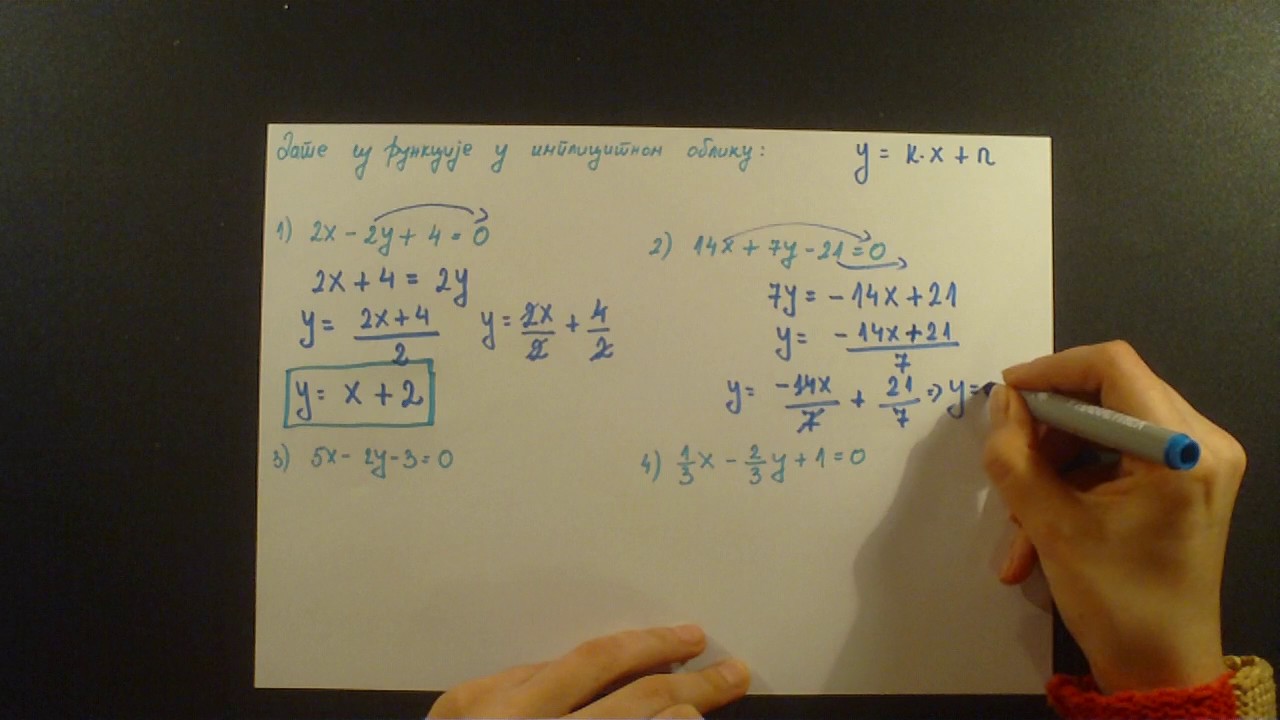 Дате су функције у имплицитном облику: y = k·x + n
1) 2x - 2y + 4 = 0
2x + 4 = 2y
y = \frac{2x+4}{2} y = \frac{2x}{2} + \frac{4}{2}
y = x + 2
2) 14x + 7y - 21 = 0
7y = -14x + 21
y = \frac{-14x+21}{7}
y = \frac{-14x}{7} + \frac{21}{7} ⇒ y =
3) 5x - 2y - 3 = 0
4) \frac{1}{3}x - \frac{2}{3}y + 1 = 0